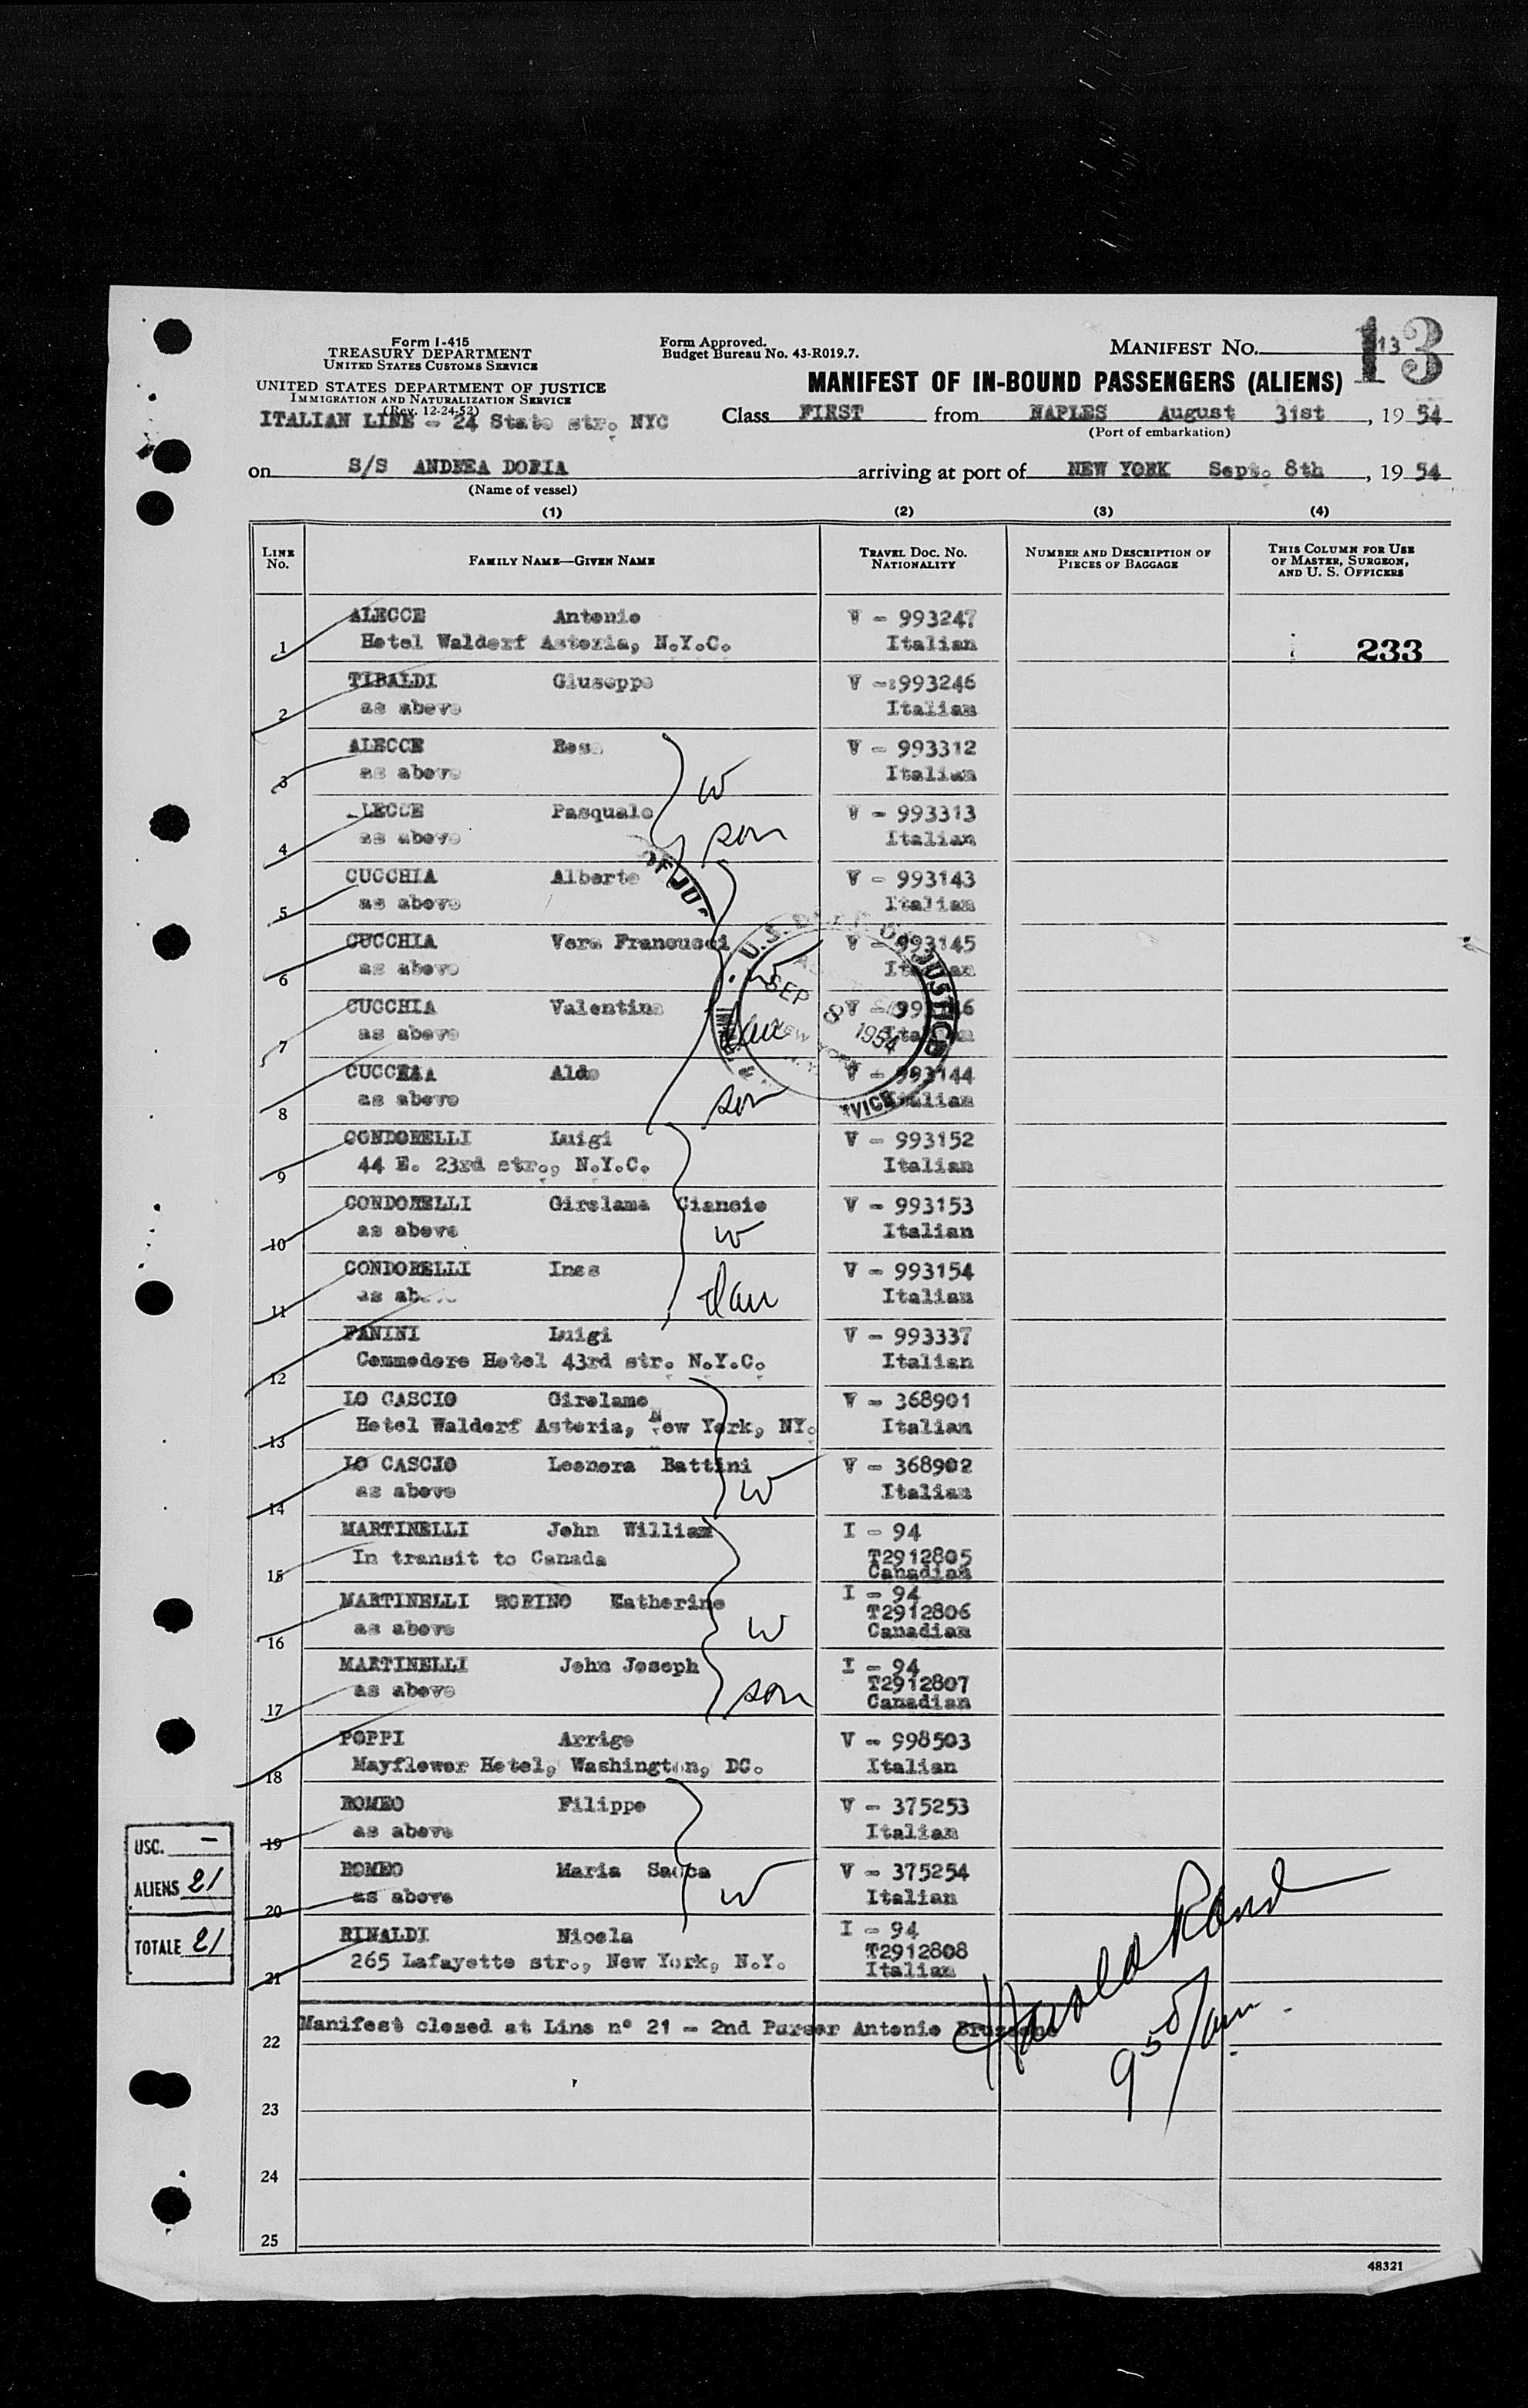 Form I-415
TREASURY DEPARTMENT
UNITED STATES CUSTOMS SERVICE
UNITED STATES DEPARTMENT OF JUSTICE
IMMIGRATION AND NATURALIZATION SERVICE
(Rev. 12-24-52)
ITALIAN LINE - 24 State str. NYC
Form Approved.
Budget Bureau No. 43-R019.7.
MANIFEST NO. 13
13
MANIFEST OF IN-BOUND PASSENGERS (ALIENS)
Class FIRST from NAPLES August 31st, 1954
(Port of embarkation)
on S/S ANDREA DORIA arriving at port of NEW YORK Sept. 8th, 1954
(Name of vessel)
(1) (2) (3) (4)
LINE No. FAMILY NAME—GIVEN NAME TRAVEL DOC. NO. NATIONALITY NUMBER AND DESCRIPTION OF PIECES OF BAGGAGE THIS COLUMN FOR USE OF MASTER, SURGEON, AND U. S. OFFICERS
ALECCE Antonio V - 993247
1 Hotel Waldorf Astoria, N.Y.C. Italian 233
TIBALDI Giuseppe V - 993246
2 as above Italian
ALECCE Rosa V - 993312
3 as above w Italian
LECCE Pasquale V - 993313
4 as above son Italian
CUCCHIA Alberto V - 993143
5 as above Italian
CUCCHIA Vera Francucci V - 993145
6 as above w Italian
CUCCHIA Valentina V - 993146
7 as above dau Italian
CUCCHIA Aldo V - 993144
8 as above son Italian
U.S. DEPT. OF JUSTICE
SEP 8 1954
NEW YORK
CONDORELLI Luigi V - 993152
9 44 E. 23rd str., N.Y.C. Italian
CONDORELLI Girolama Ciancio V - 993153
10 as above w Italian
CONDORELLI Ines V - 993154
11 as above dau Italian
PANINI Luigi V - 993337
12 Commodore Hotel 43rd str. N.Y.C. Italian
LO CASCIO Girolamo V - 368901
13 Hotel Waldorf Astoria, New York, NY. Italian
LO CASCIO Leonora Battini V - 368902
14 as above w Italian
MARTINELLI John William I - 94
15 In transit to Canada T2912805
Canadian
MARTINELLI ROBINO Katherine I - 94
T2912806
16 as above w Canadian
MARTINELLI John Joseph I - 94
T2912807
17 as above son Canadian
POPPI Arrigo V - 998503
18 Mayflower Hotel, Washington, DC. Italian
ROMEO Filippo V - 375253
19 as above Italian
ROMEO Maria Sacca V - 375254
20 as above w Italian
RINALDI Nicola I - 94
T2912808
21 265 Lafayette str., New York, N.Y. Italian
USC. -
ALIENS 21
TOTALE 21
22 Manifest closed at Line n° 21 - 2nd Purser Antonio
Harold Rand
9 50/am
23
24
25
48321